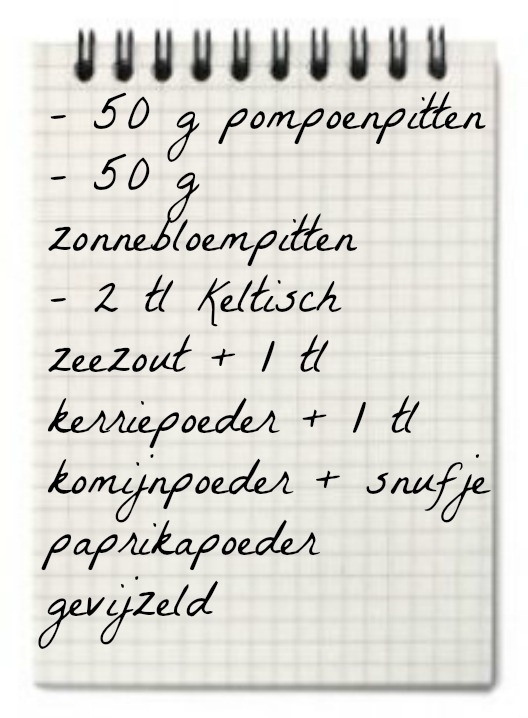 - 50 g pompoenpitten
- 50 g
zonnebloempitten
- 2 tl Keltisch
zeezout + 1 tl
kerriepoeder + 1 tl
komijnpoeder + snufje
paprikapoeder
gevijzeld